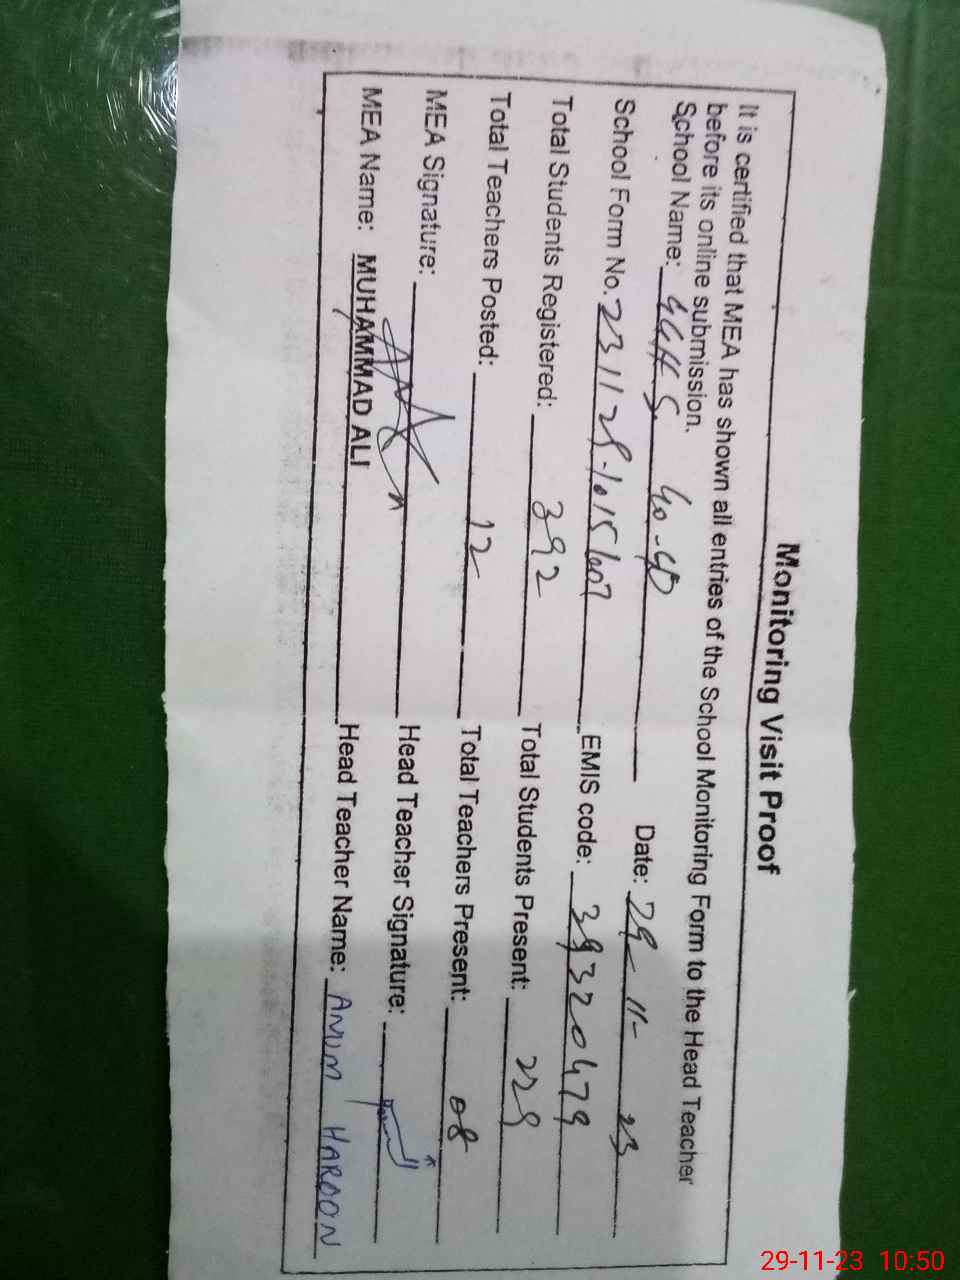 Monitoring Visit Proof
It is certified that MEA has shown all entries of the School Monitoring Form to the Head Teacher
before its online submission.
School Name: GGHS 40-4D Date: 29-11-23
School Form No. 231129-1015607 EMIS code: 39320479
Total Students Registered: 392 Total Students Present: 229
Total Teachers Posted: 12 Total Teachers Present: 08
MEA Signature: Head Teacher Signature:
MEA Name: MUHAMMAD ALI Head Teacher Name: ANUM HAROON
29-11-23 10:50